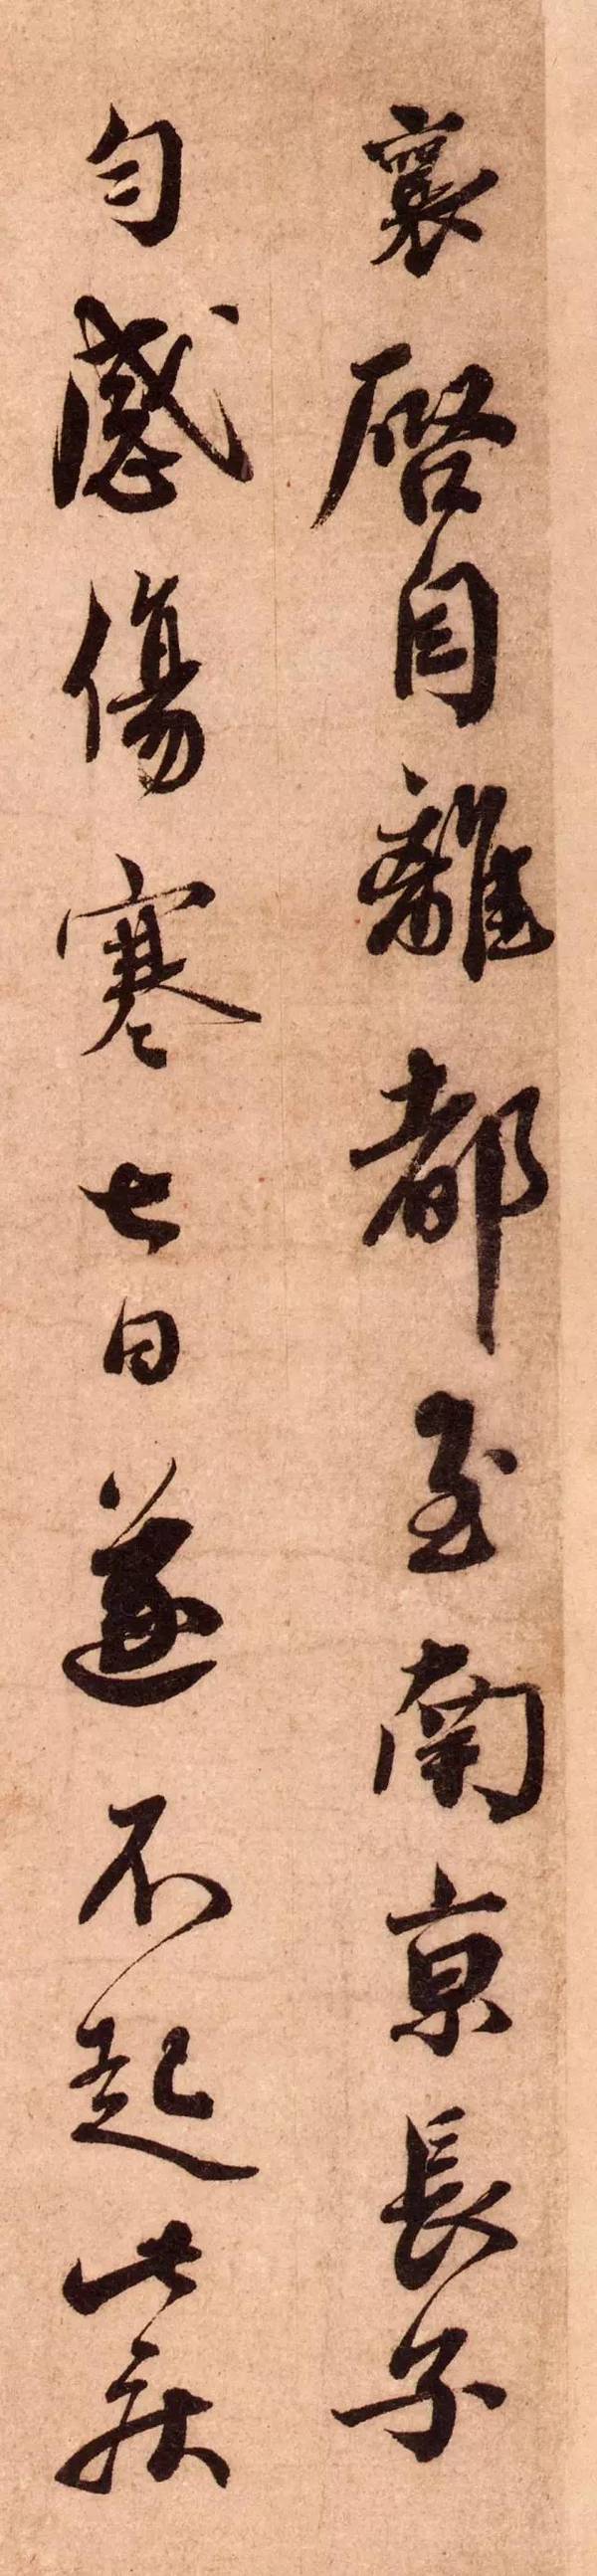 襄啓自離都至南京長子
勻感傷寒七日遂不起此疾